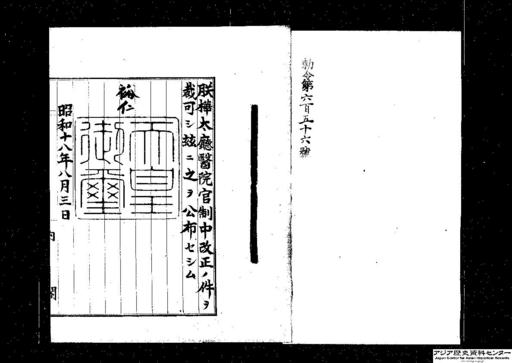 勅令第六百五十六號
朕樺太廳醫院官制中改正ノ件ヲ
裁可シ玆ニ之ヲ公布セシム
裕仁
天皇
御璽
昭和十八年八月三日
内閣
アジア歴史資料センター
Japan Center for Asian Historical Records